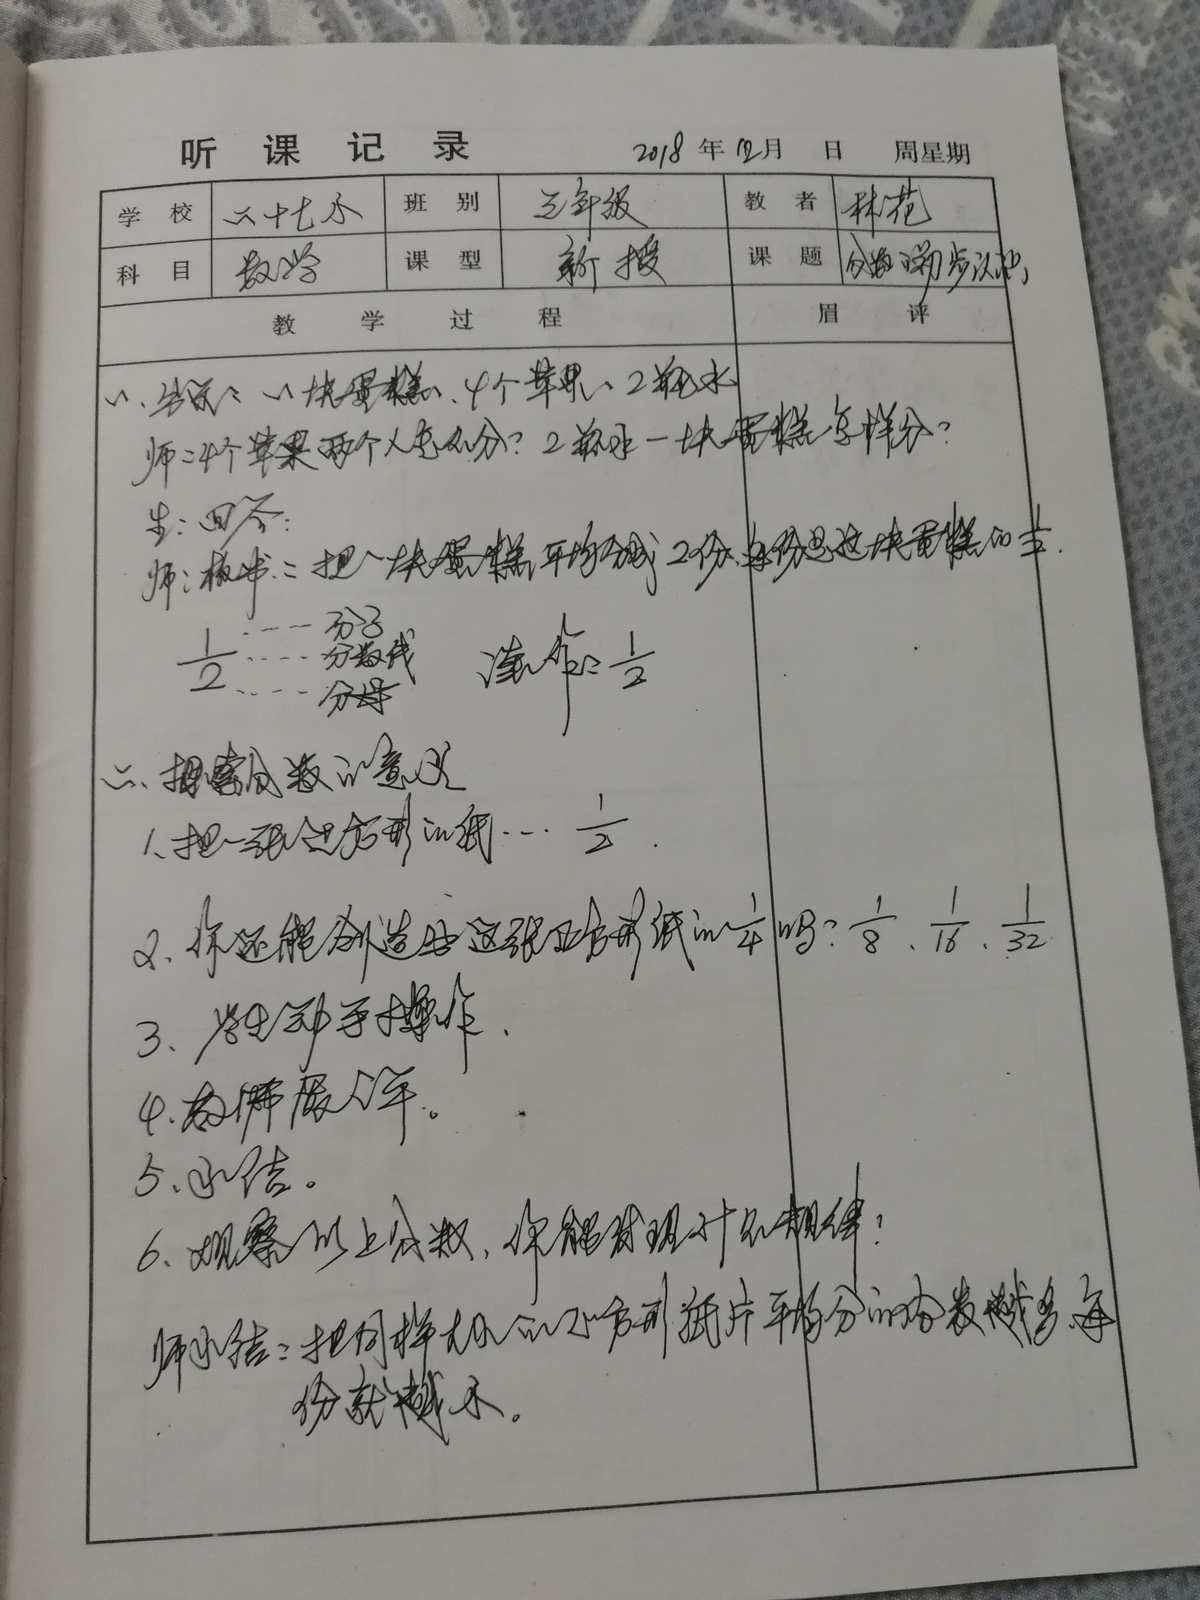 听课记录 2018年12月 日 周星期
学校 二十七小 班别 三年级 教者 林花
科目 数学 课型 新授 课题 分数的初步认识
教学过程 眉评
一、出示：一块蛋糕、4个苹果、2瓶水
师：4个苹果两个人怎么分？2瓶水一块蛋糕怎样分？
生：回答：
师：板书：把一块蛋糕平均分成2份，每份是这块蛋糕的1/2.
1/2 ---- 分子
---- 分数线 读作：1/2
---- 分母
二、探索分数的意义
1、把一张正方形的纸… 1/2.
2、你还能创造出这张正方形纸的1/4吗？1/8、1/16、1/32
3、学生动手操作.
4、教师展示。
5、小结。
6、观察以上分数，你能发现什么规律？
师小结：把同样大小的正方形纸片平均分的份数越多，每
份就越小。